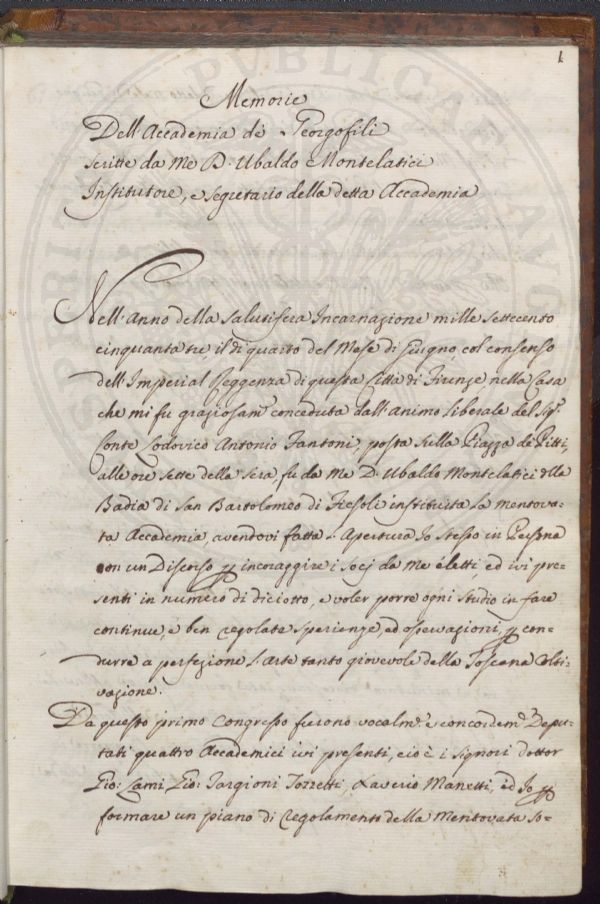 1
PVBLICAE
Memorie
Dell'Accademia de' Georgofili
scritte da Me D: Ubaldo Montelatici
Institutore, e Segretario della detta Accademia
Nell'Anno della Salutifera Incarnazione mille settecento
cinquanta tre il dì quarto del Mese di Giugno, col consenso
dell'Imperial Reggenza di questa Città di Firenze, nella Casa
che mi fu graziosam:e conceduta dall'Animo Liberale del Sig:r
Conte Lodovico Antonio Fantoni, posta sulla Piazza de Pitti,
alle ore sette della sera, fu da Me D. Ubaldo Montelatici della
Badia di San Bartolomeo di Fiesoli instituita la mentova=
ta Accademia, avendovi fatta l'Apertura Io stesso in Persona
con un Discorso p incoraggire i Socj da me eletti, ed ivi pre=
senti in numero di diciotto, e voler porre ogni studio in fare
continue, e ben regolate sperienze, ed osservazioni, p con=
durre a perfezione l'Arte tanto giovevole della Toscana Colti=
vazione.
Da questo primo Congresso furono vocalm:e e concordem:e Depu=
tati quattro Accademici ivi presenti, cioè i Signori dottor
Gio: Lami, Gio: Targioni Tozzetti, Xaverio Manetti, ed Io p
formare un piano di Regolamento della Mentovata So=